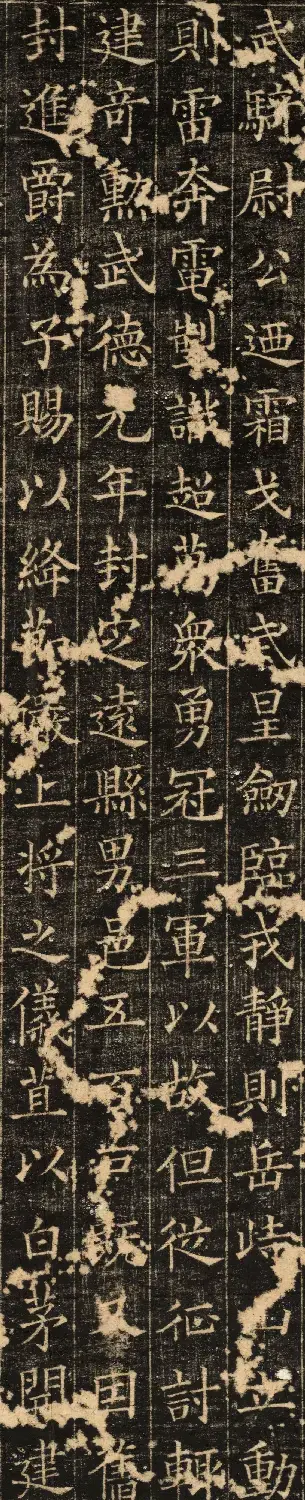 武騎尉公迺霜戈奮武星劒臨戎静則岳峙山立動
則雷奔電掣識超萬衆勇冠三軍以故但從征討輒
建竒勲武德元年封定遠縣男邑五百戶既又因舊
封進爵為子賜以絳節儼上将之儀苴以白茅開建